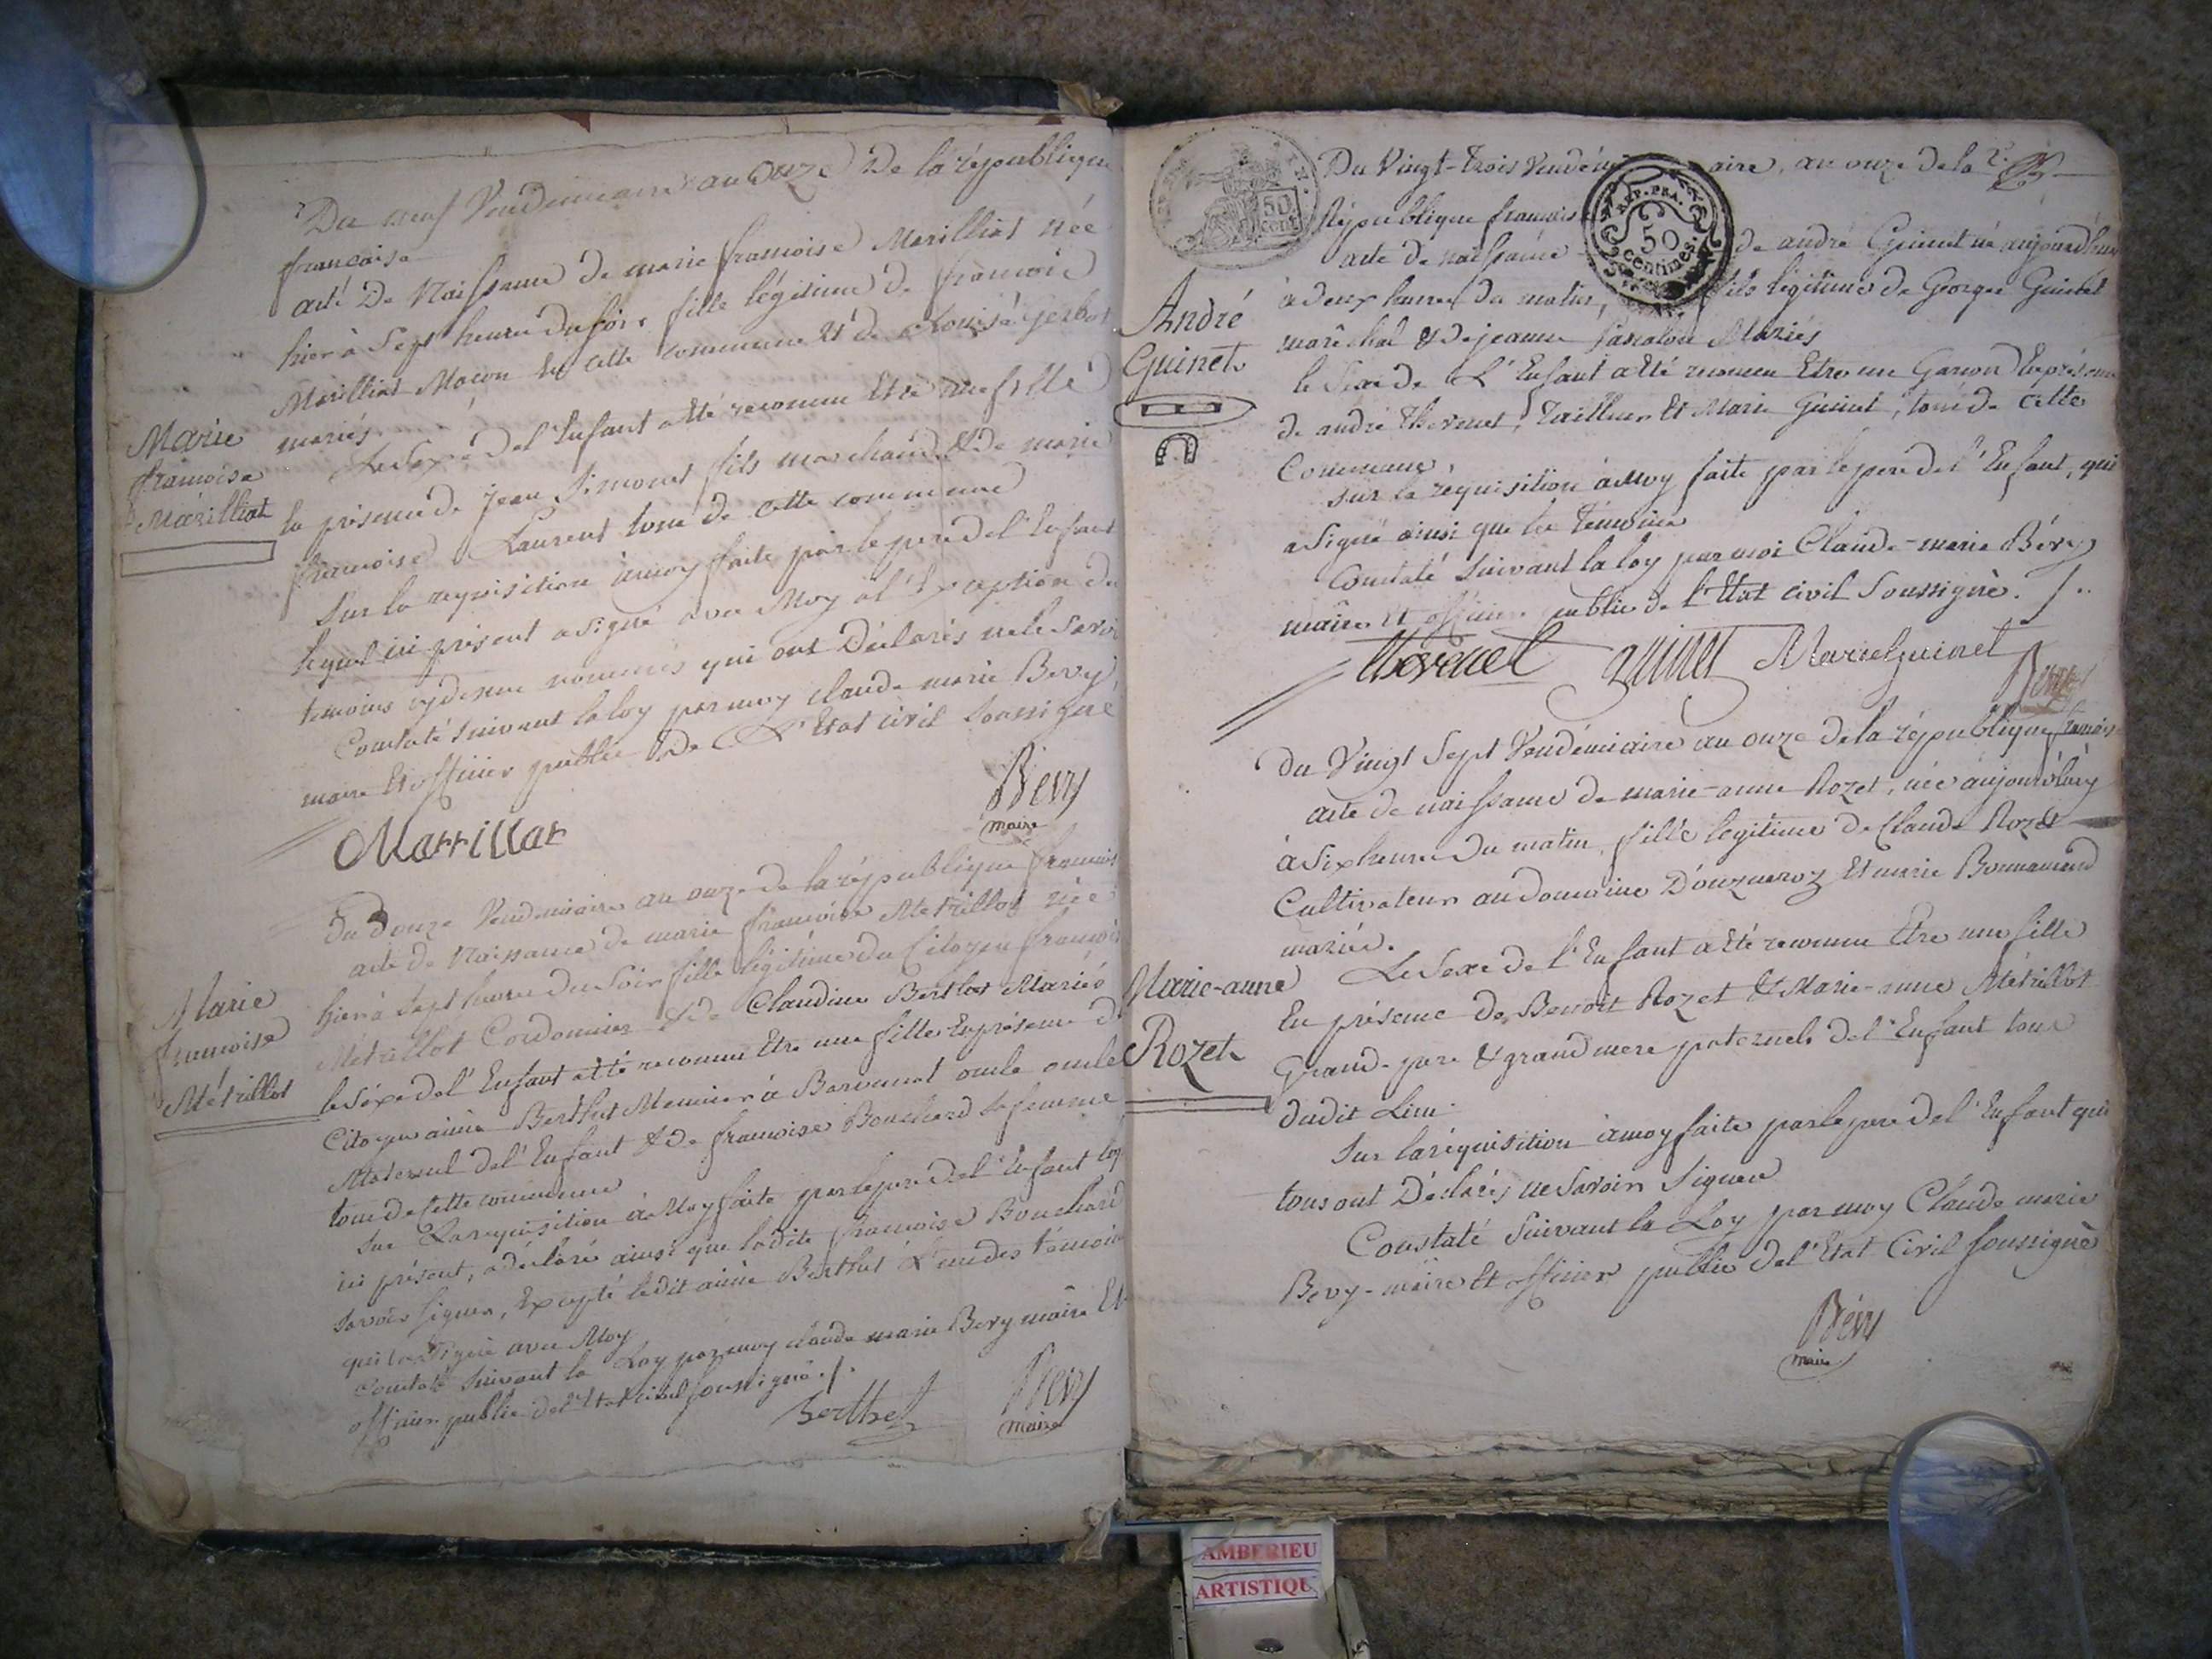 Du neuf Vendemiaire an onze De la république
francaise
acte De Naissance de marie francoise Marilliat née
hier à Sept heure du soir fille légitime de francois
Marilliat Macon de cette commune et de Louise Gerbat
mariés
Le Sexe de l'Enfant a été reconnu Etre une fille
la présence de jean Simonet fils marchand & de marie
francoise Laurent tous de cette commune
Sur la requisition à moy faite par le pere de l'Enfant
lequel ici présent a signé avec Moy a l'Exception des
temoins cydessus nommés qui ont Déclarés ne le Savoir
Constaté suivant la loy par moy claude marie Bevy
maire Et officier public De L'Etat civil soussigné
Marie
francoise
Marilliat
Marrillat
Bevy
maire
Du Douze Vendemiaire an onze de la république francois
acte de Naissance de marie francoise Metrillot née
hier à Sept heure du Soir fille légitime du Citoyen francois
Metrillot Cordonnier & de Claudine Berthet Mariés
le Séxe de l'Enfant a été reconnu Etre une fille En présence d
Citoyen aimé Berthet Meunier à oncle oncle
Maternel de l'Enfant & De francoise Bouchard sa femme
tous de Cette commune
Sur La requisition à Moy faite par le pere de l'Enfant
ici présent, a déclaré ainsi que ladite francoise Bouchard
Savoir Signer, Excepté ledit aimé Berthet L'un des témoins
qui a signé avec Moy
Constaté Suivant la Loy par moy claude marie Bevy maire Et
officier public de l'Etat civil soussigné ./.
Marie
francoise
Métrillot
Berthet
Bevy
maire
50
cent
Du Vingt-trois Vendém aire, an onze de la
République francais
REP. FRA.
50
centimes.
acte de naissance de andré Guinet né aujourd'huy
à deux heures du matin, fils légitime de George Guinet
marêchal & de jeanne Mariés
le Sexe de L'Enfant a été reconnu Etre un Garcon En présence
de andré thevenet, tailleur Et Marie Guinet, tous de cette
Commune,
Sur la requisition à Moy faite par le pere de l'Enfant, qui
a Signé ainsi que les témoins
Constaté suivant la loy par moi Claude-marie Bévy
maire Et officier public de l'Etat civil Soussigné. /..
André
Guinet
thevenet guinet Marie guinet
Bevy
du Vingt Sept Vendémiaire an onze de la république francois
acte de naissance de marie-anne Rozet, née aujourd'huy
à Six heure du matin, fille legitime de Claude Rozet
Cultivateur au domaine D'ouzneroz Et marie Bonnamand
mariés.
Le Sexe de l'Enfant a été reconnu Etre une fille
En présence de Benoit Rozet & Marie-anne Métrillot
Grand-pere & grand mere paternels de l'Enfant tous
dudit Lieu.
Sur la réquisition à moy faite par le pere de l'Enfant qui
tous ont Déclarés ne Savoir Signer
Constaté Suivant la Loy par moy Claude marie
Bevy-maire Et officier public de l'Etat Civil soussigné
Marie-anne
Rozet
Bévy
maire
AMBERIEU
ARTISTIQU